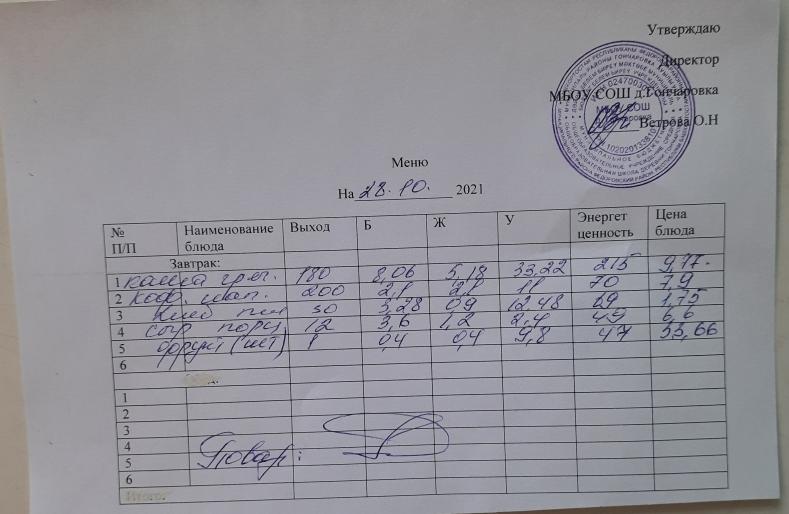 Утверждаю
Директор
МБОУ СОШ д.Гончаровка
Ветрова О.Н
Меню
На 28.10. 2021
№ П/П Наименование блюда Выход Б Ж У Энергет ценность Цена блюда
Завтрак:
1 каша греч. 180 8,06 5,18 33,22 215 9,77
2 коф. нап. 200 2,1 11 70 7,9
3 хлеб 50 3,28 09 12,48 1,75
4 сыр порц 12 3,6 1,2 2,4 49 6,6
5 фрукт (шт) 1 0,4 0,4 9,8 47 53,66
6
1
2
3
4
5 Повар:
6
Итого: